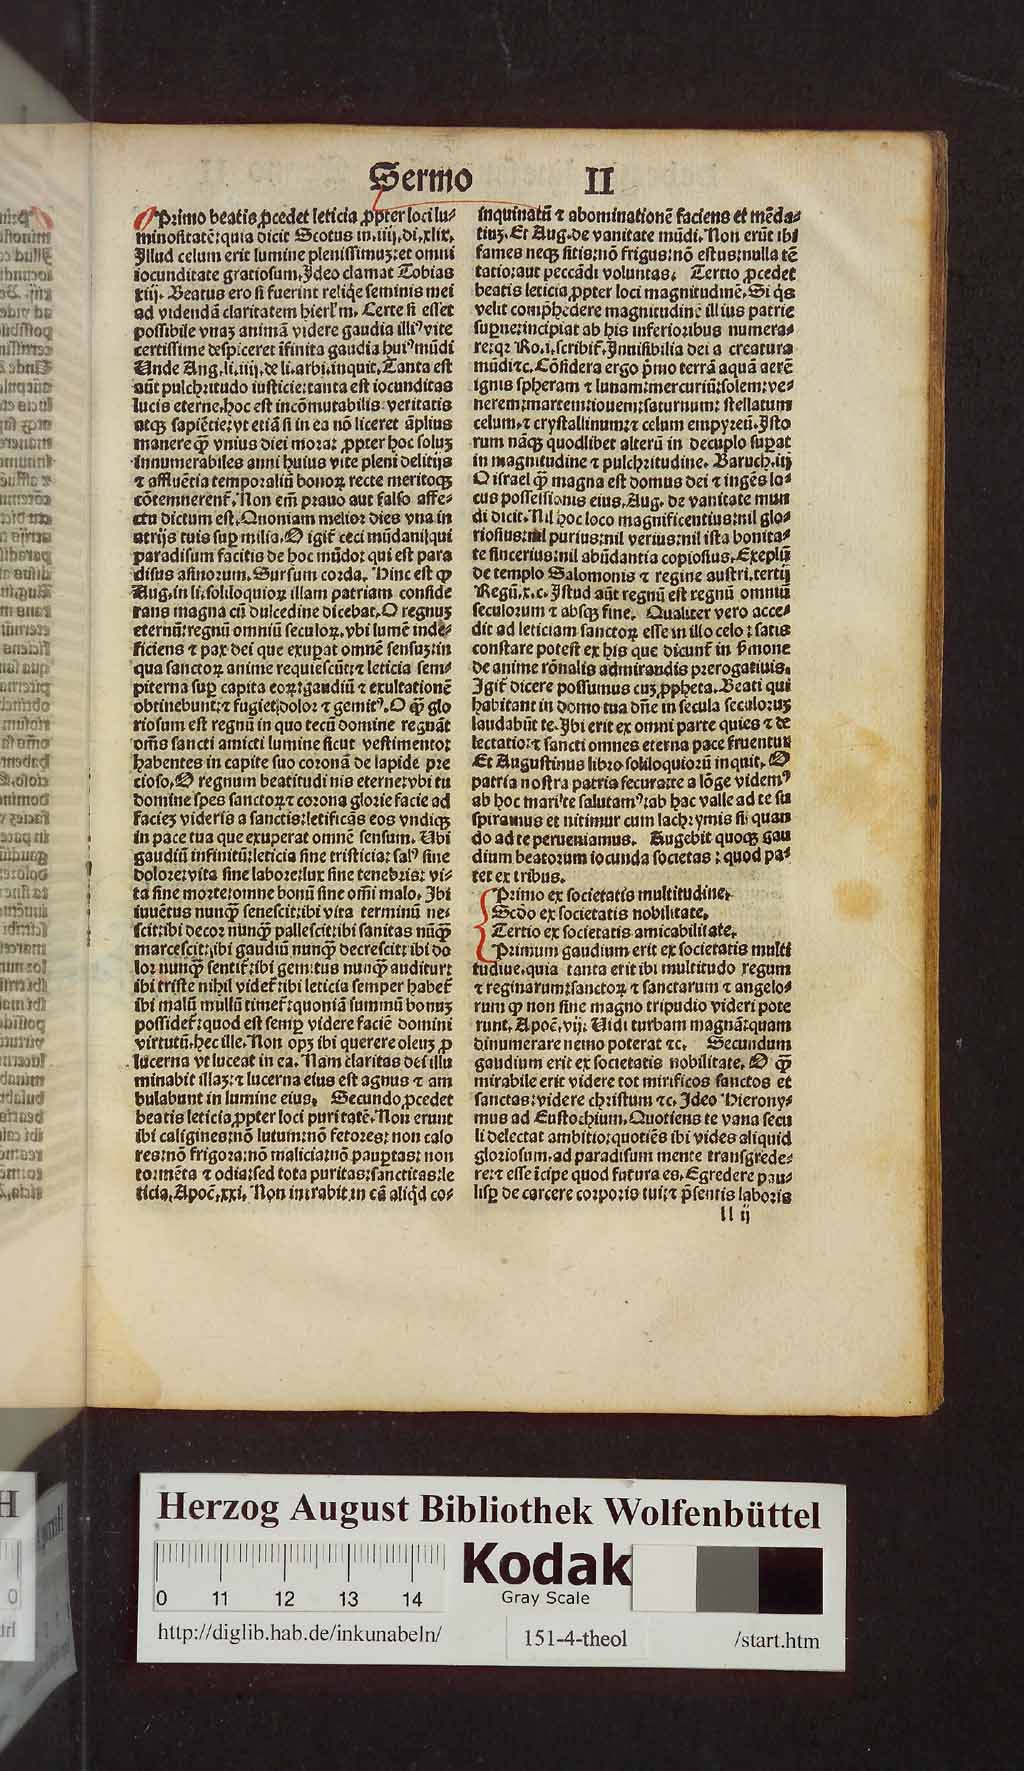 Sermo II
Primo beatis ꝓcedet leticia ꝓpter loci lu⸗
minositatē: quia dicit Scotus in.iiij.di.xlix.
Illud celum erit lumine plenissimuꝫ: et omni
iocunditate gratiosum. Ideo clamat Tobias
xiij. Beatus ero si fuerint reliq̄e seminis mei
ad videndā claritatem hierl̄m. Certe si esset
possibile vnaꝫ animā videre gaudia illiꝰ vite
certissime despiceret īfinita gaudia huiꝰ mūdi
Unde Aug. li. iij. de li. arbi. inquit. Tanta est
aūt pulchritudo iusticie: tanta est iocunditas
lucis eterne. hoc est incōmutabilis veritatis
atqꝫ sapiētie: vt etiā si in ea nō liceret āplius
manere qꝫ̄ vnius diei mora: ꝓpter hoc soluꝫ
innumerabiles anni huius vite pleni delitijs
⁊ affluētia temporaliū bonoꝝ recte meritoqꝫ
cōtemnerent̄. Non em̄ prauo aut falso affe⸗
ctu dictum est. Quoniam melior dies vna in
atrijs tuis suꝑ milia. O igit̄ ceci mūdani qui
paradisum facitis de hoc mūdo: qui est para
disus asinorum. Sursum corda. Hinc est ꝙ
Aug. in li. soliloquioꝝ illam patriam conside
rans magna cū dulcedine dicebat. O regnuꝫ
eternū: regnū omniū seculoꝝ. vbi lumē inde⸗
ficiens ⁊ pax dei que exuꝑat omnē sensuꝫ: in
qua sanctoꝝ anime requiescūt: ⁊ leticia sem⸗
piterna suꝑ capita eoꝝ: gaudiū ⁊ exultationē
obtinebunt: ⁊ fugiet dolor ⁊ gemitꝰ. O qꝫ̄ glo
riosum est regnū in quo tecū domine regnāt
om̄s sancti amicti lumine sicut vestimento:
habentes in capite suo coronā de lapide pre
cioso. O regnum beatitudinis eterne: vbi tu
domine spes sanctoꝝ ⁊ corona glorie facie ad
facieꝫ videris a sanctis: letificās eos vndiqꝫ
in pace tua que exuperat omnē sensum. Ubi
gaudiū infinitū: leticia sine tristicia: salꝰ sine
dolore: vita sine labore: lux sine tenebris: vi⸗
ta sine morte: omne bonū sine om̄i malo. Ibi
iuuētus nunqꝫ̄ senescit: ibi vita terminū ne⸗
scit: ibi decor nunqꝫ̄ pallescit: ibi sanitas nūqꝫ̄
marcescit: ibi gaudiū nunqꝫ̄ decrescit: ibi do
lor nunqꝫ̄ sentit̄: ibi gemitus nunqꝫ̄ auditur:
ibi triste nihil videt̄: ibi leticia semper habet̄
ibi malū nullū timet̄: quoniā summū bonuꝫ
possidet̄: quod est semꝑ videre faciē domini
virtutū. hec ille. Non opꝫ ibi querere oleuꝫ ꝓ
lucerna vt luceat in ea. Nam claritas dei illu
minabit illaꝫ: ⁊ lucerna eius est agnus ⁊ am
bulabunt in lumine eius. Secundo ꝓcedet
beatis leticia ꝓpter loci puritatē. Non erunt
ibi caligines: nō lutum: nō fetores: non calo
res: nō frigora: nō malicia: nō pauꝑtas: non
tormēta ⁊ odia: sed tota puritas: sanctitas: le
ticia. Apoc̄. xxi. Non intrabit in eā aliqd̄ co⸗
inquinatū ⁊ abominationē faciens et mēda⸗
tiuꝫ. Et Aug. de vanitate mūdi. Non erūt ibi
fames neqꝫ sitis: nō frigus: nō estus: nulla tē
tatio: aut peccādi voluntas. Tertio ꝓcedet
beatis leticia ꝓpter loci magnitudinē. Si q̄s
velit comp̄hēdere magnitudinē illius patrie
suꝑne: incipiat ab his inferioribus numera⸗
re: qꝛ Ro. i. scribit̄. Inuisibilia dei a creatura
mūdi ⁊c. Cōsidera ergo p̄mo terrā aquā aerē
ignis spheram ⁊ lunam: mercuriū: solem: ve⸗
nerem: martem: iouem: saturnum: stellatum
celum. ⁊ crystallinum: ⁊ celum empyreū. Isto
rum nāqꝫ quodlibet alterū in decuplo suꝑat
in magnitudine ⁊ pulchritudine. Baruch. iij
O israel qꝫ̄ magna est domus dei ⁊ ingēs lo⸗
cus possessionis eius. Aug. de vanitate mun
di dicit. Nil hoc loco magnificentius: nil glo⸗
riosius: nil purius: nil verius: nil ista bonita⸗
te sincerius: nil abūdantia copiosius. Exeplū
de templo Salomonis ⁊ regine austri. tertij
Regū. x. c. Istud aūt regnū est regnū omniū
seculorum ⁊ absqꝫ fine. Qualiter vero acce⸗
dit ad leticiam sanctoꝝ esse in illo celo: satis
constare potest ex his que dicunt̄ in s̄mone
de anime rōnalis admirandis prerogatiuis.
Igit̄ dicere possumus cuꝫ ꝓpheta. Beati qui
habitant in domo tua dn̄e in secula seculoruꝫ
laudabūt te. Ibi erit ex omni parte quies ⁊ de
lectatio: ⁊ sancti omnes eterna pace fruentur
Et Augustinus libro soliloquiorū inquit. O
patria nostra patria secura: te a lōge videmꝰ
ab hoc mari te salutamꝰ: ab hac valle ad te su
spiramus et nitimur cum lachrymis si quan
do ad te perueniamus. Augebit quoqꝫ gau
dium beatorum iocunda societas: quod pa⸗
tet ex tribus.
Primo ex societatis multitudine.
Scd̄o ex societatis nobilitate.
Tertio ex societatis amicabilitate.
Primum gaudium erit ex societatis multi
tudine. quia tanta erit ibi multitudo regum
⁊ reginarum: sanctoꝝ ⁊ sanctarum ⁊ angelo⸗
rum ꝙ non sine magno tripudio videri pote
runt. Apoc̄. vij. Uidi turbam magnā: quam
dinumerare nemo poterat ⁊c. Secundum
gaudium erit ex societatis nobilitate. O qꝫ̄
mirabile erit videre tot mirificos sanctos et
sanctas: videre christum ⁊c. Ideo Hierony⸗
mus ad Eustochium. Quotiens te vana secu
li delectat ambitio: quotiēs ibi vides aliquid
gloriosum. ad paradisum mente transgrede⸗
re: ⁊ esse īcipe quod futura es. Egredere pau⸗
lisꝑ de carcere corporis tui: ⁊ p̄sentis laboris
ll ij
Herzog August Bibliothek Wolfenbüttel
Kodak
Gray Scale
0 11 12 13 14
http://diglib.hab.de/inkunabeln/ 151-4-theol /start.htm